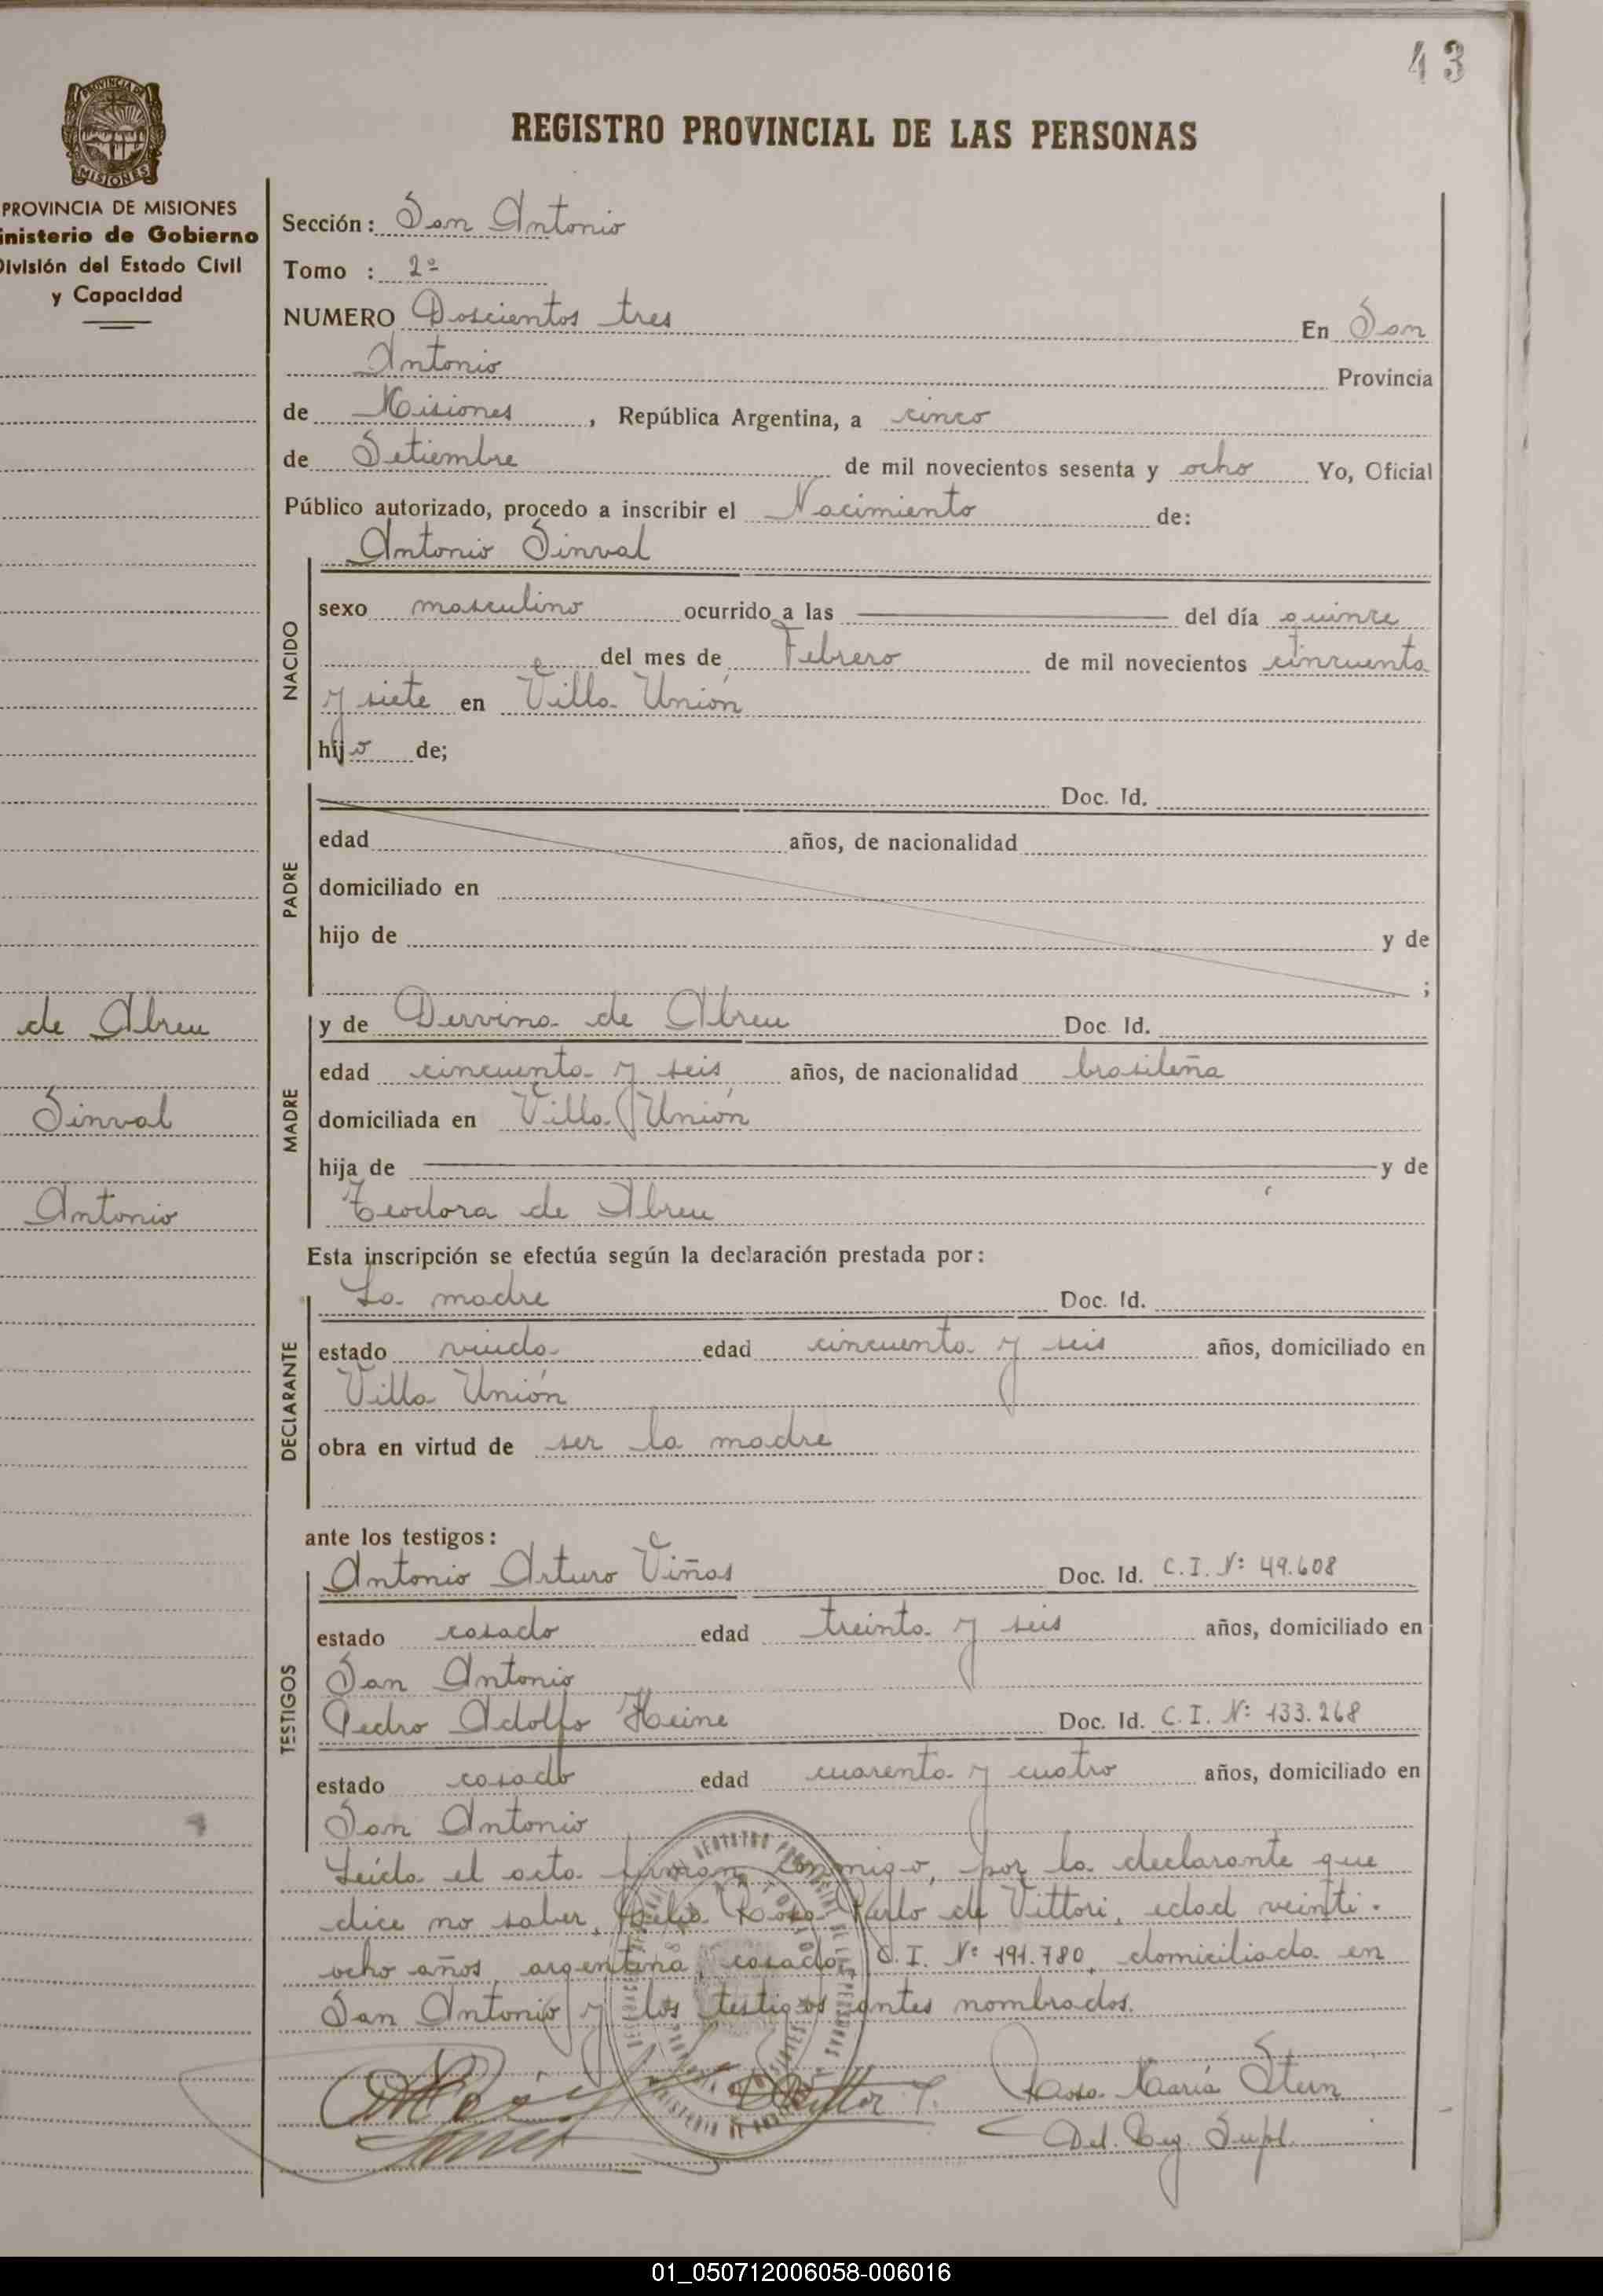 43
PROVINCIA DE
MISIONES
REGISTRO PROVINCIAL DE LAS PERSONAS
PROVINCIA DE MISIONES
inisterio de Gobierno
División del Estado Civil
y Capacidad
Sección: San Antonio
Tomo : 2º
NUMERO Doscientos tres En San
Antonio Provincia
de Misiones, República Argentina, a cinco
de Setiembre de mil novecientos sesenta y ocho Yo, Oficial
Público autorizado, procedo a inscribir el Nacimiento de:
Antonio Sinval
NACIDO
sexo masculino ocurrido a las del día quince
del mes de Febrero de mil novecientos cincuenta
y siete en Villa Unión
hijo de;
PADRE
Doc. Id.
edad años, de nacionalidad
domiciliado en
hijo de y de
;
de Abreu
Sinval
Antonio
MADRE
y de Dervina de Abreu Doc. Id.
edad cincuenta y seis años, de nacionalidad brasileña
domiciliada en Villa Unión
hija de y de
Teodora de Abreu
Esta inscripción se efectúa según la declaración prestada por:
DECLARANTE
La madre Doc. Id.
estado viuda edad cincuenta y seis años, domiciliado en
Villa Unión
obra en virtud de ser la madre
ante los testigos:
TESTIGOS
Antonio Arturo Viñas Doc. Id. C.I. Nº 49.608
estado casado edad treinta y seis años, domiciliado en
San Antonio
Pedro Adolfo Heine Doc. Id. C.I. Nº 133.268
estado casado edad cuarenta y cuatro años, domiciliado en
San Antonio
Leída el acta firman conmigo, por la declarante que
dice no saber, Rosa de Vittori, edad veinti-
ocho años, argentina, casada, C.I. Nº 191.780, domiciliada en
San Antonio y los testigos antes nombrados.
Rosa María Stern
Del. Reg. Supl.
01_050712006058-006016